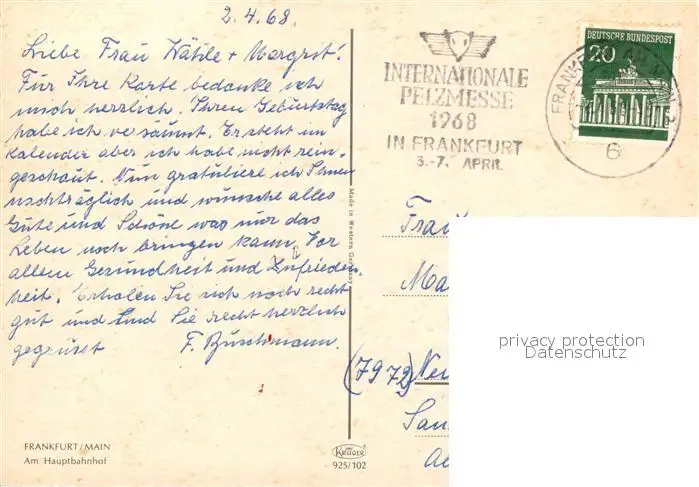 2.4.68.
Liebe Frau Wähle + Margrit!
Für Ihre Karte bedanke ich
mich herzlich. Ihren Geburtstag
habe ich versäumt. Er steht im
Kalender aber ich habe nicht rein-
geschaut. Nun gratuliere ich Ihnen
nachträglich und wünsche alles
Gute und Schöne was nur das
Leben noch bringen kann. Vor
allem Gesundheit und Zufrieden
heit. Erholen Sie sich noch recht
gut und sind Sie recht herzlich
gegrüsst F. Buschmann.
FRANKFURT/MAIN
Am Hauptbahnhof
Made in Western Germany
KRÜGER
925/102
INTERNATIONALE
PELZMESSE
1968
IN FRANKFURT
3.-7. APRIL
DEUTSCHE BUNDESPOST
20
FRANKFURT AM MAIN
6
Frau
Ma
(7972)
privacy protection
Datenschutz